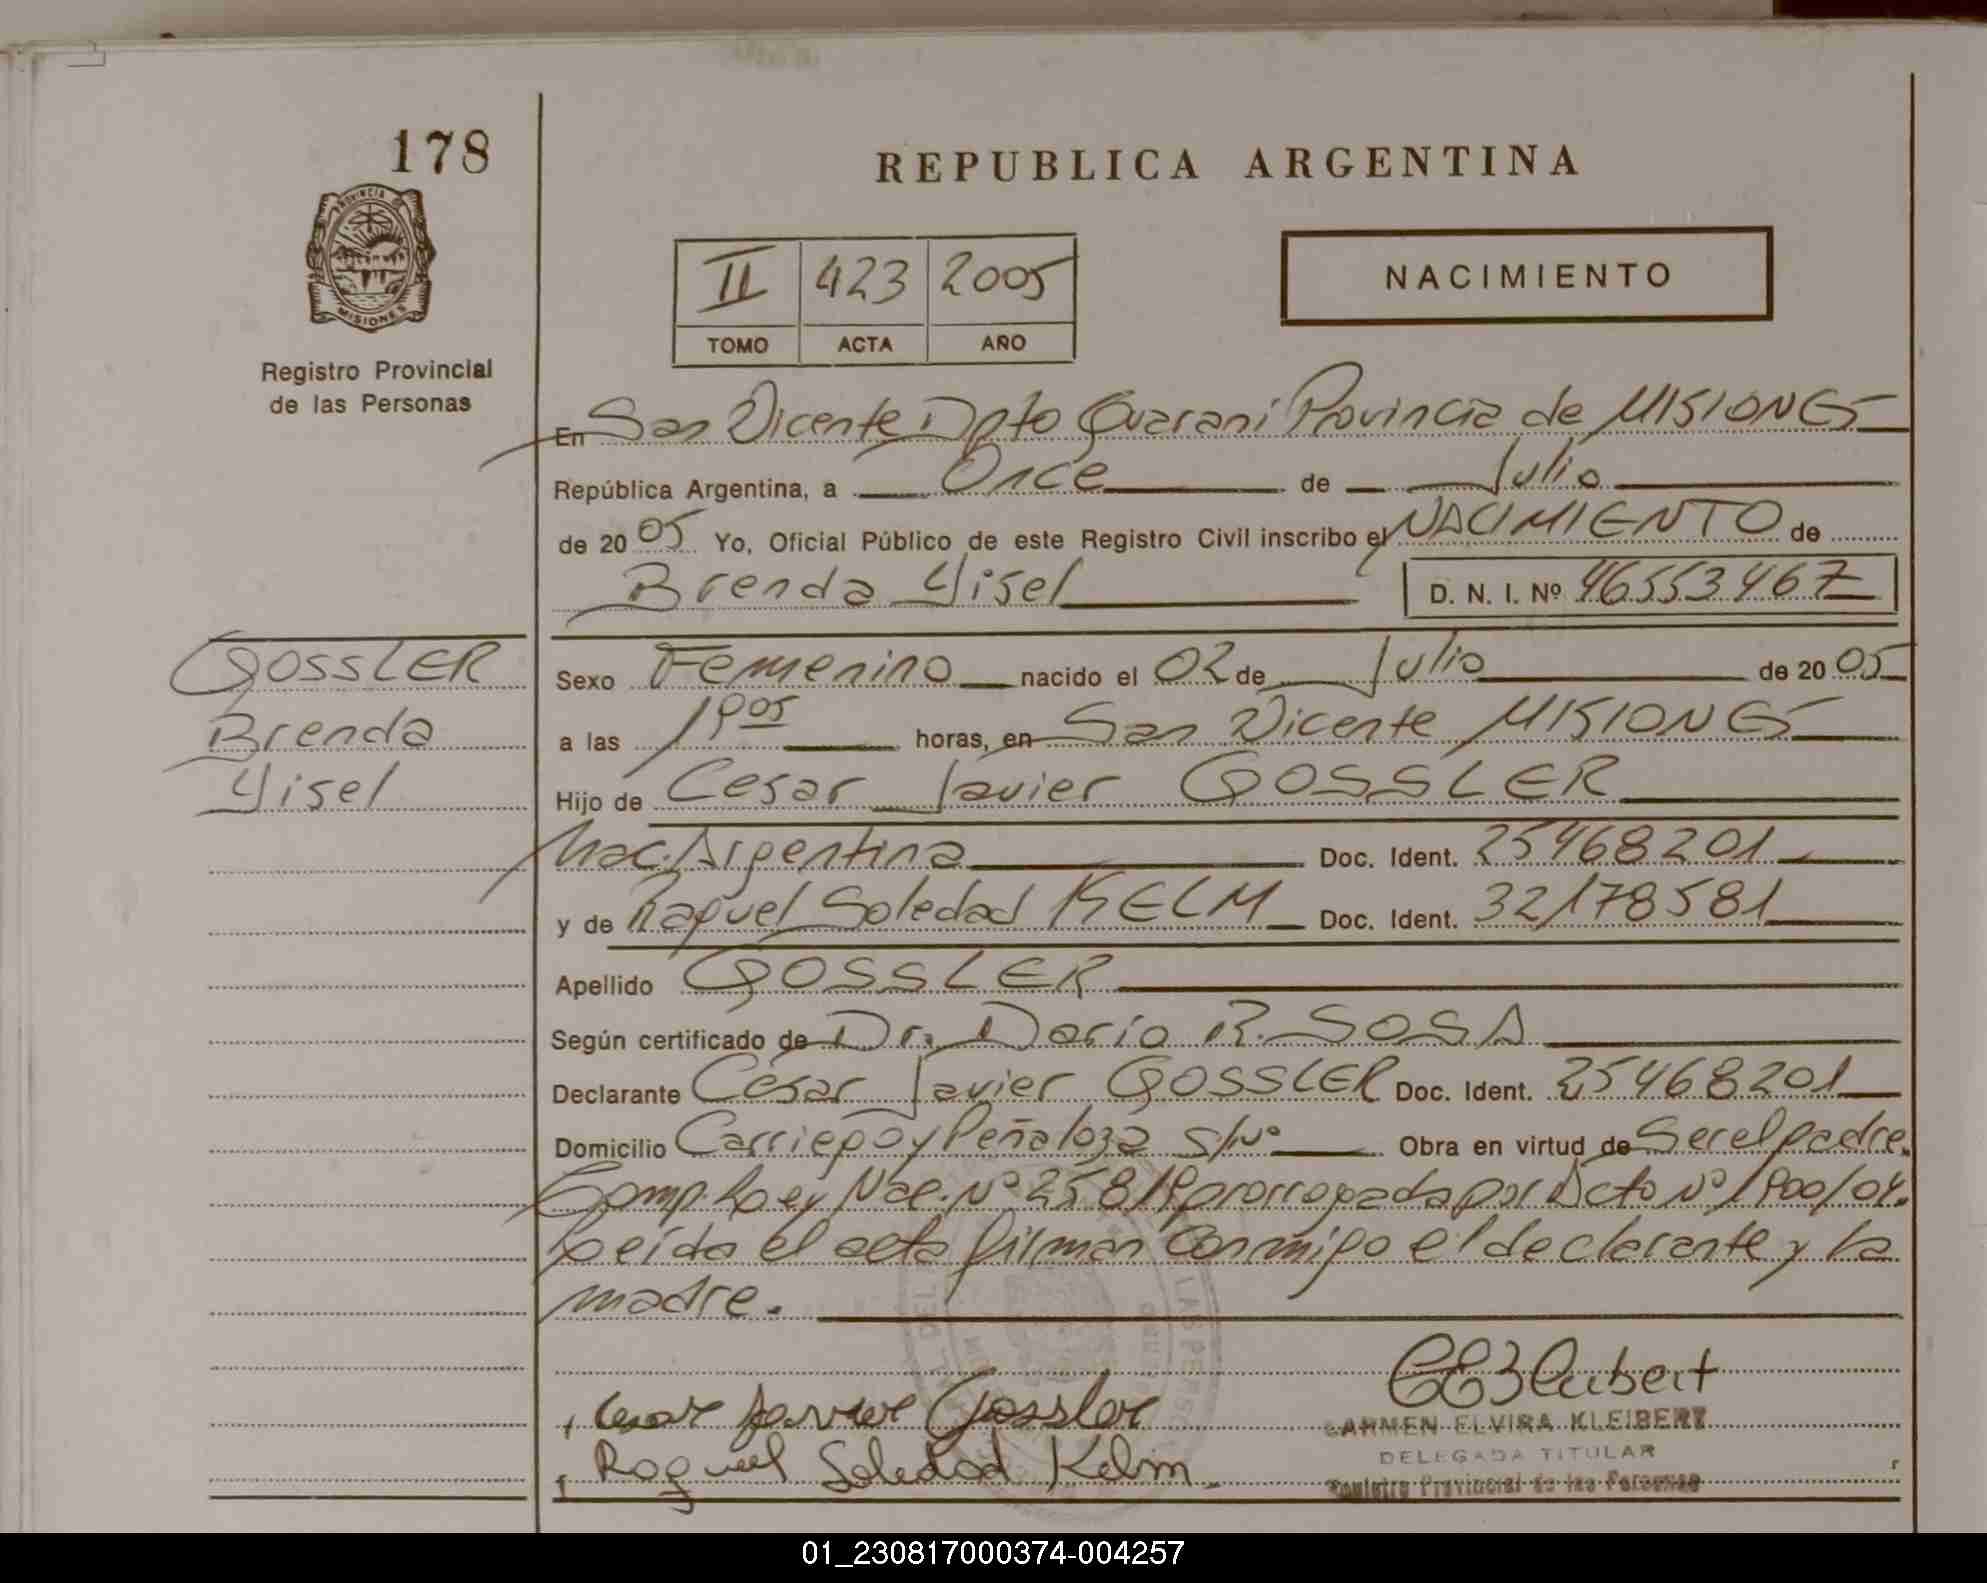 178
REPUBLICA ARGENTINA
PROVINCIA DE
MISIONES
Registro Provincial
de las Personas
II 423 2005
TOMO ACTA AÑO
NACIMIENTO
En San Vicente Dpto Guarani Provincia de MISIONES
República Argentina, a Once de Julio
de 20 05 Yo, Oficial Público de este Registro Civil inscribo el NACIMIENTO de
Brenda Yisel D. N. I. Nº 46553467
GOSSLER
Brenda
Yisel
Sexo Femenino nacido el 02 de Julio de 20 05
a las 19 05 horas, en San Vicente MISIONES
Hijo de Cesar Javier GOSSLER
Nac. Argentina Doc. Ident. 25468201
y de Raquel Soledad KELM Doc. Ident. 32178581
Apellido GOSSLER
Según certificado de Dr. Dario R. SOSA
Declarante César Javier GOSSLER Doc. Ident. 25468201
Domicilio Carriego y Peñaloza s/nº Obra en virtud de Ser el padre.
Comp. Ley Nac. Nº 25819 prorrogada por Dcto Nº 1900/04.
Leída el acta firman conmigo el declarante y la
madre.
Cesar Javier Gossler
Raquel Soledad Kelm
CEKleibert
CARMEN ELVIRA KLEIBERT
DELEGADA TITULAR
Registro Provincial de las Personas
01_230817000374-004257